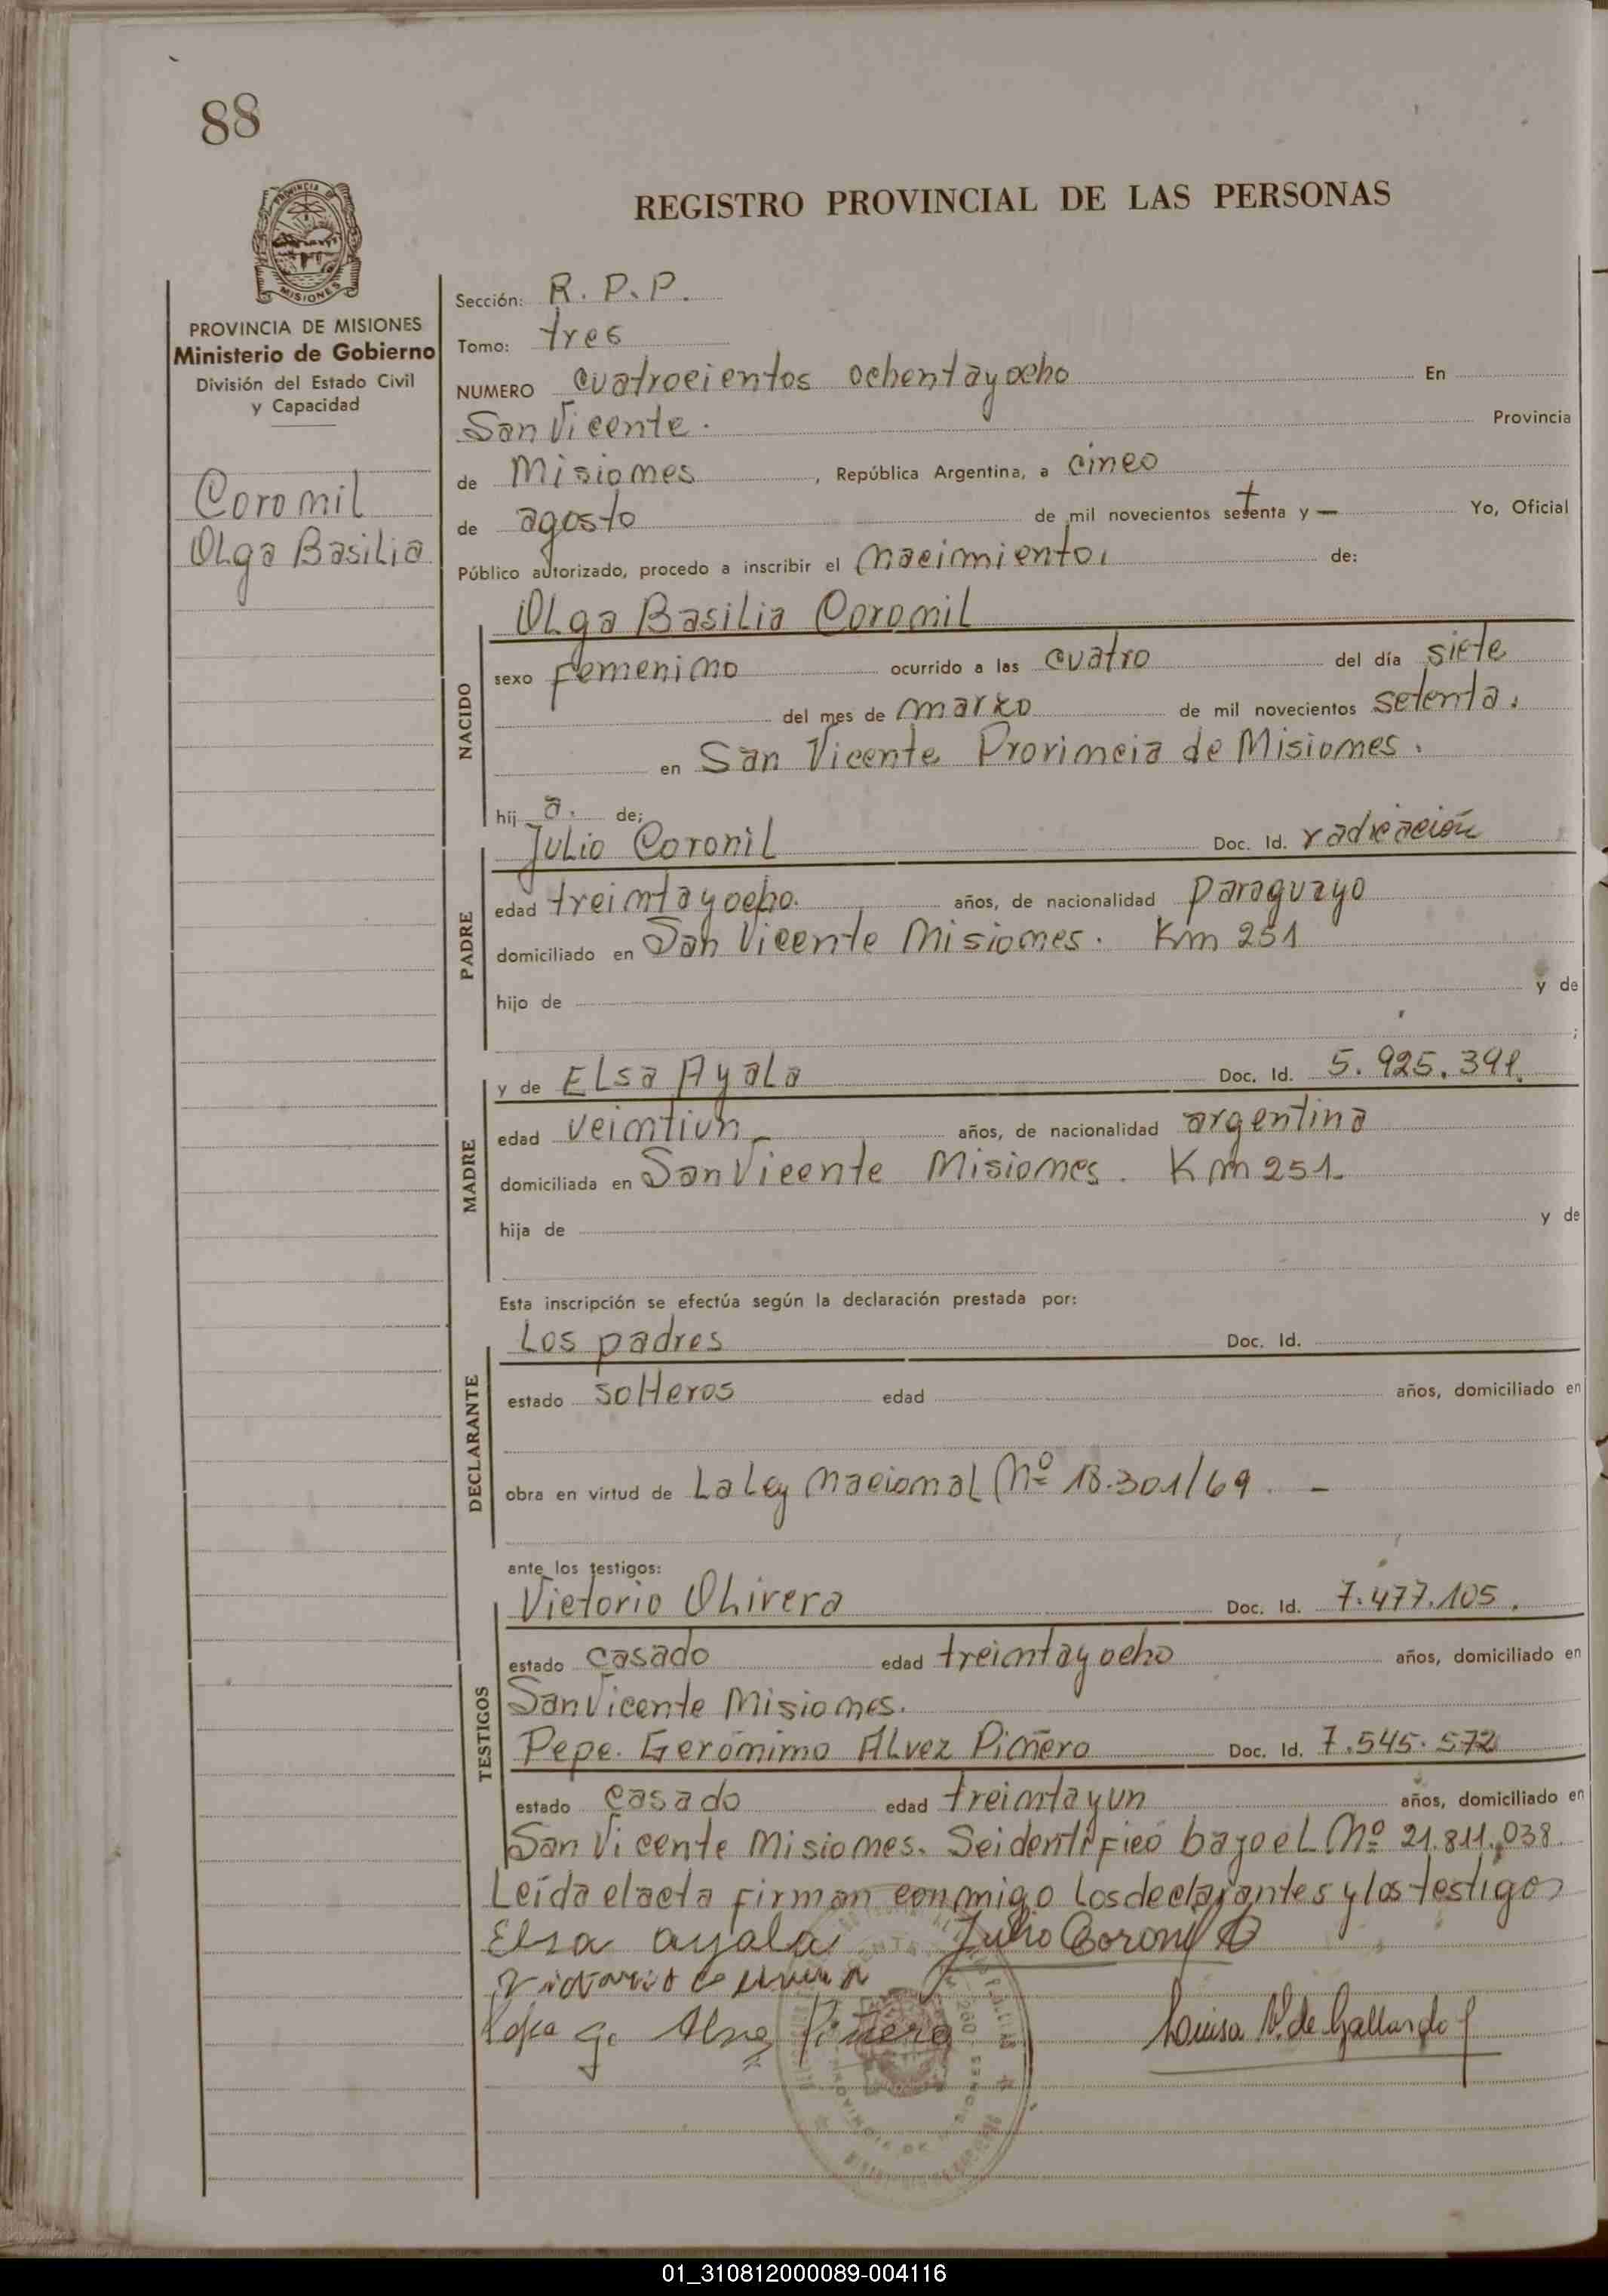 88
REGISTRO PROVINCIAL DE LAS PERSONAS
PROVINCIA DE MISIONES
Ministerio de Gobierno
División del Estado Civil
y Capacidad
Coronil
Olga Basilia
Sección: R.P.P.
Tomo: tres
NUMERO cuatrocientos ochentayocho En
San Vicente. Provincia
de Misiones, República Argentina, a cinco
de agosto de mil novecientos setenta y — Yo, Oficial
Público autorizado, procedo a inscribir el nacimiento, de:
Olga Basilia Coronil
NACIDO
sexo femenino ocurrido a las cuatro del día siete
del mes de marzo de mil novecientos setenta.
en San Vicente Provincia de Misiones.
hij a. de;
Julio Coronil Doc. Id. radicación
PADRE
edad treintayocho. años, de nacionalidad paraguayo
domiciliado en San Vicente Misiones. Km 251
hijo de y de
;
y de Elsa Ayala Doc. Id. 5.925.391.
MADRE
edad veintiun años, de nacionalidad argentina
domiciliada en San Vicente Misiones. Km 251.
hija de y de
Esta inscripción se efectúa según la declaración prestada por:
Los padres Doc. Id.
DECLARANTE
estado solteros edad años, domiciliado en
obra en virtud de La Ley Nacional Nº 18.301/69. —
ante los testigos:
Victorio Olivera Doc. Id. 7.477.105.
TESTIGOS
estado casado edad treintayocho años, domiciliado en
San Vicente Misiones.
Pepe. Gerónimo Alvez Piñero Doc. Id. 7.545.572
estado casado edad treintayun años, domiciliado en
San Vicente Misiones. Seidentificó bajoel Nº 21.811.038.
Leída elacta firman conmigo losdeclarantes ylos testigos
Elsa ayala Julio Coronil
Luisa V. de Gallardo
01_310812000089-004116